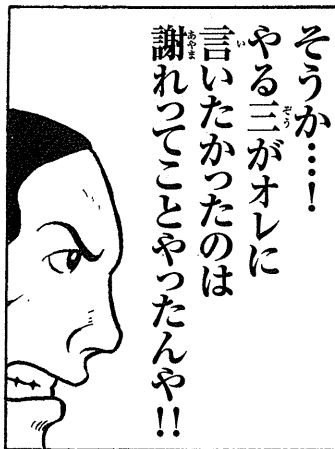 そうか…!
やる三がオレに
言いたかったのは
謝れってことやったんや!!